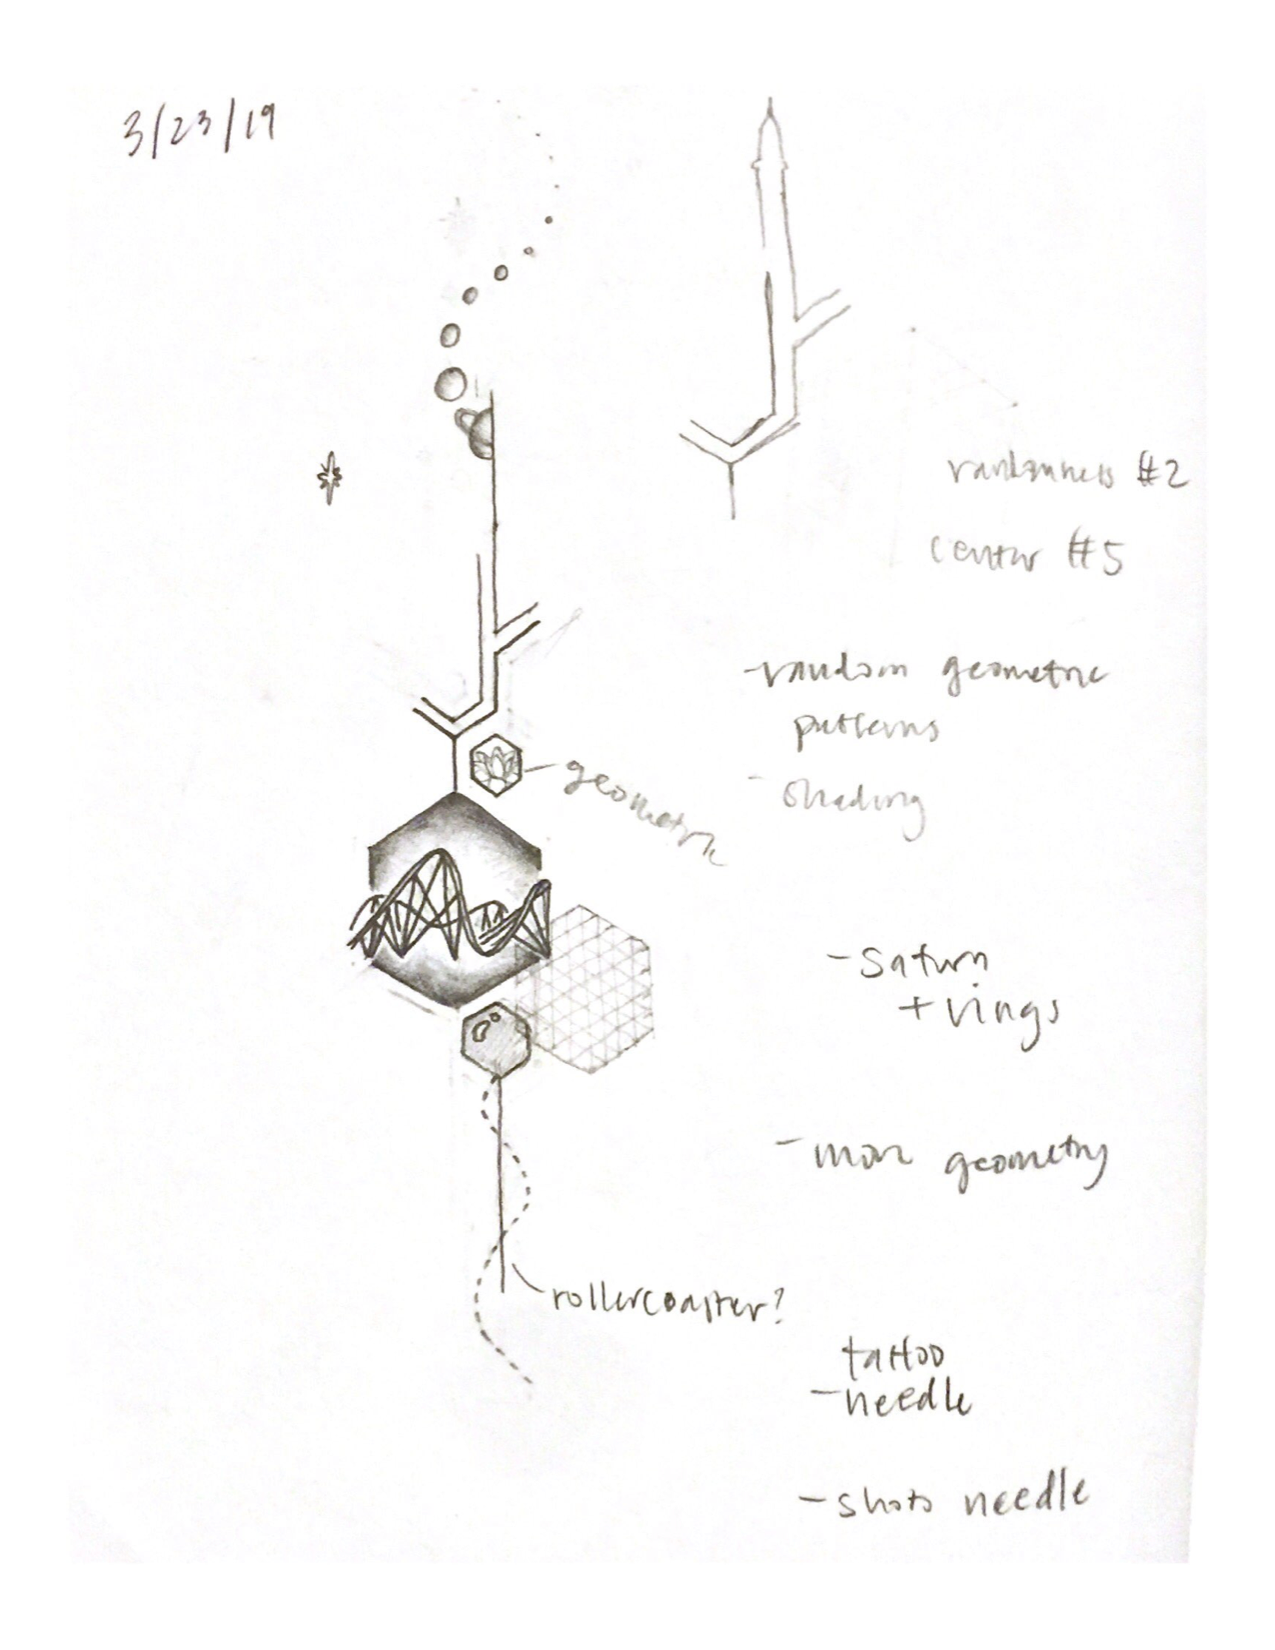 3/23/19
randomness #2
center #5
-random geometric
patterns
- shading
geometric
- Saturn
+ rings
- more geometry
rollercoaster?
tattoo
-needle
- shots needle